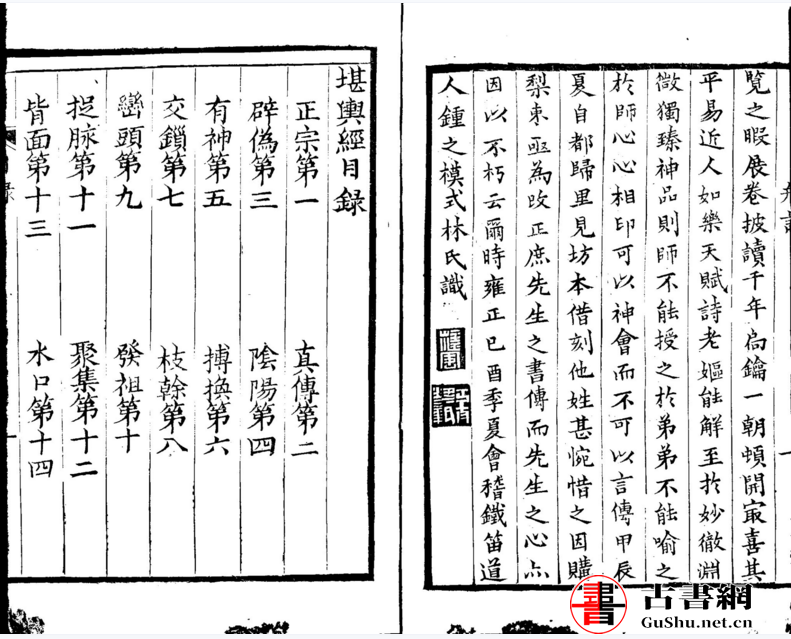 覽之暇展卷披讀千年扃鑰一朝頓開㝡喜其
平易近人如樂天賦詩老嫗能解至於妙徹淵
微獨臻神品則師不能授之於弟弟不能喻之
於師心心相印可以神會而不可以言傳甲辰
夏自都歸里見坊本借刻他姓甚惋惜之因購
梨棗亟為改正庶先生之書傳而先生之心亦
因以不朽云爾時雍正已酉季夏會稽鐵笛道
人鍾之模式林氏識
堪輿經目錄
正宗第一 真傳第二
辟偽第三 陰陽第四
有神第五 摶換第六
交鎖第七 枝幹第八
巒頭第九 發祖第十
捉脉第十一 聚集第十二
背面第十三 水口第十四
古書網
GuShu.net.cn